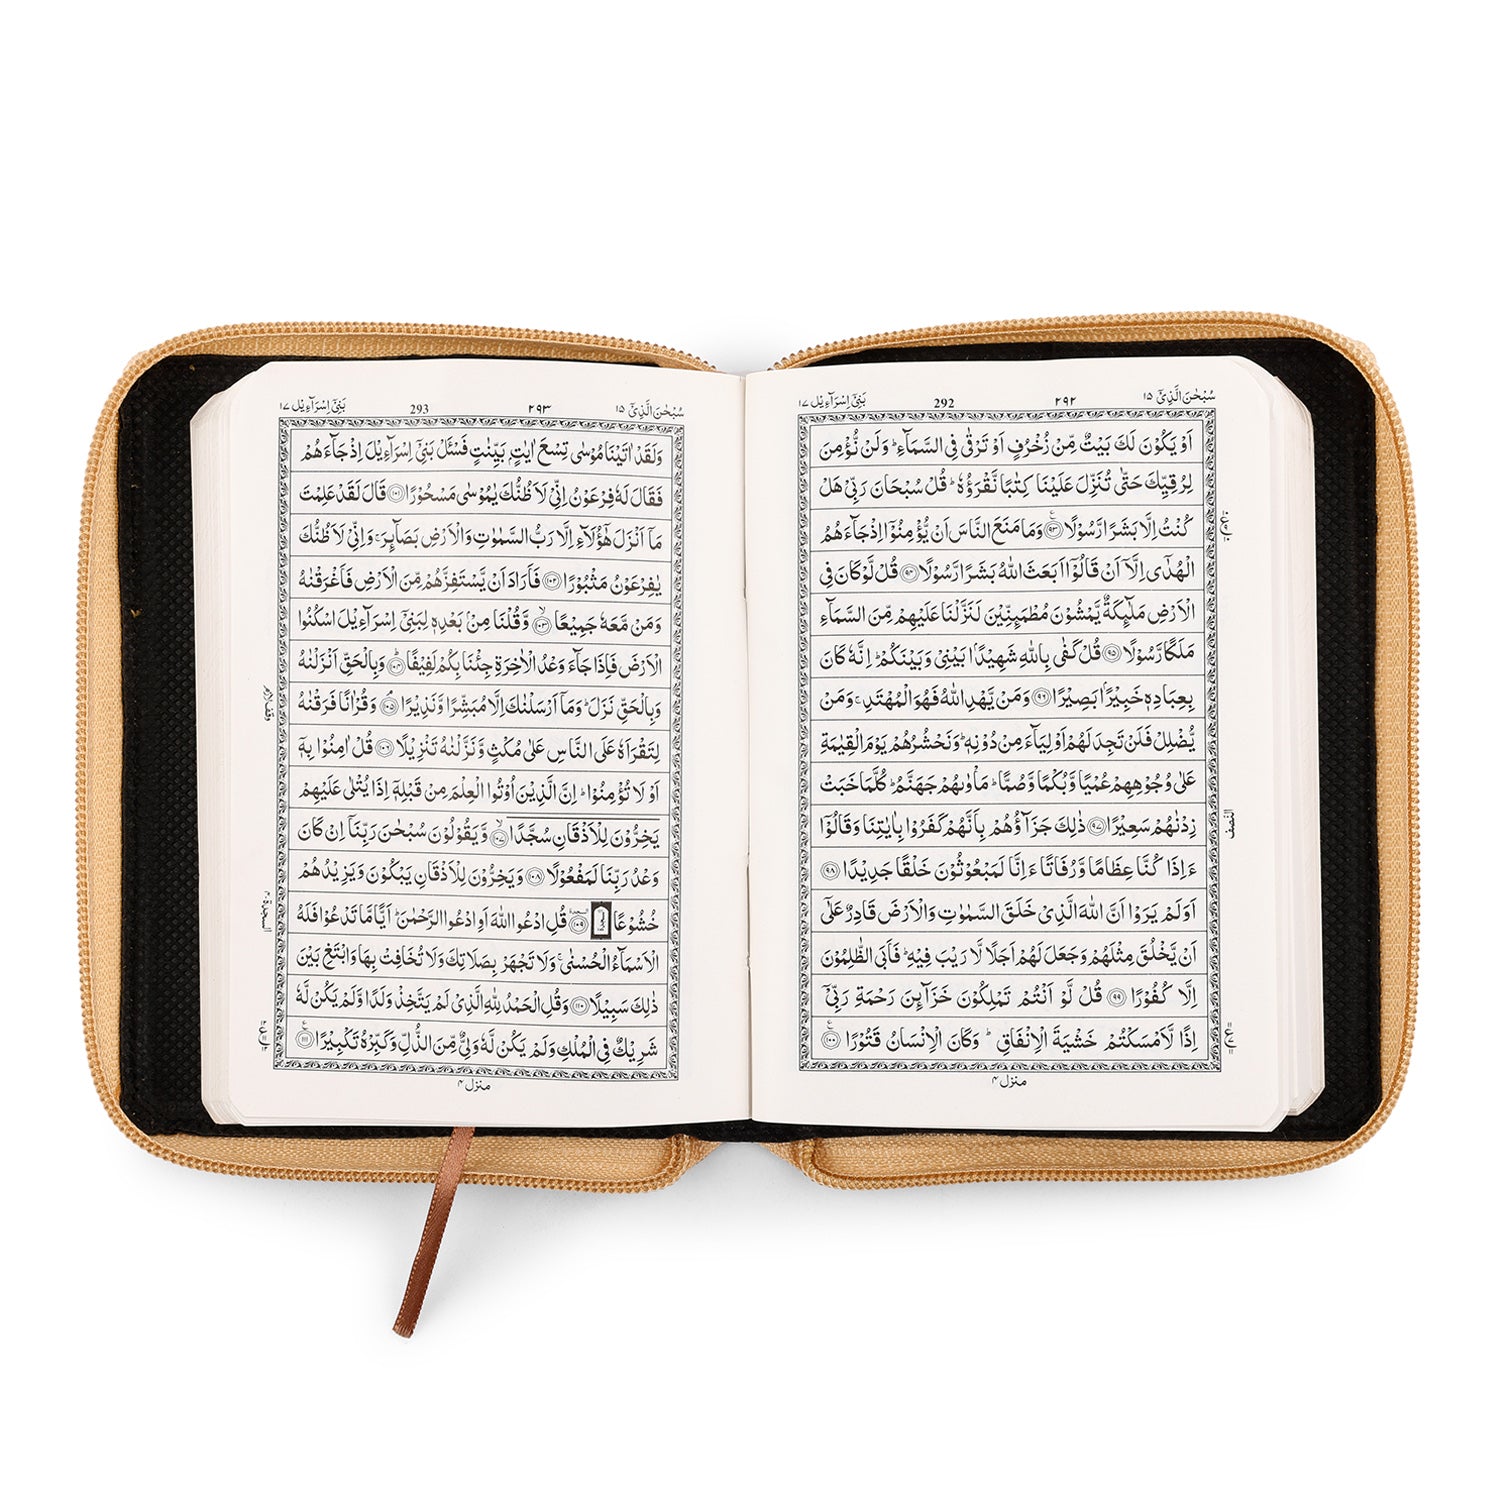 سُبْحٰنَ الَّذِیْۤ ۱۵
۲۹۲
292
بَنِیْۤ اِسْرَآءِیْل ۱۷
اَوْ یَكُوْنَ لَكَ بَیْتٌ مِّنْ زُخْرُفٍ اَوْ تَرْقٰى فِی السَّمَآءِ ؕ وَلَنْ نُّؤْمِنَ
لِرُقِیِّكَ حَتّٰى تُنَزِّلَ عَلَیْنَا كِتٰبًا نَّقْرَؤُهٗ ؕ قُلْ سُبْحَانَ رَبِّیْ هَلْ
كُنْتُ اِلَّا بَشَرًا رَّسُوْلًا ۟۹۳ وَمَا مَنَعَ النَّاسَ اَنْ یُّؤْمِنُوْۤا اِذْ جَآءَهُمُ
الْهُدٰۤى اِلَّاۤ اَنْ قَالُوْۤا اَبَعَثَ اللّٰهُ بَشَرًا رَّسُوْلًا ۹۴ قُلْ لَّوْ كَانَ فِی
الْاَرْضِ مَلٰٓىِٕكَةٌ یَّمْشُوْنَ مُطْمَىِٕنِّیْنَ لَنَزَّلْنَا عَلَیْهِمْ مِّنَ السَّمَآءِ
مَلَكًا رَّسُوْلًا ۹۵ قُلْ كَفٰى بِاللّٰهِ شَهِیْدًۢا بَیْنِیْ وَبَیْنَكُمْ ؕ اِنَّهٗ كَانَ
بِعِبَادِهٖ خَبِیْرًۢا بَصِیْرًا ۹۶ وَمَنْ یَّهْدِ اللّٰهُ فَهُوَ الْمُهْتَدِ ۚ وَمَنْ
یُّضْلِلْ فَلَنْ تَجِدَ لَهُمْ اَوْلِیَآءَ مِنْ دُوْنِهٖ ؕ وَنَحْشُرُهُمْ یَوْمَ الْقِیٰمَةِ
عَلٰى وُجُوْهِهِمْ عُمْیًا وَّبُكْمًا وَّصُمًّا ؕ مَاْوٰىهُمْ جَهَنَّمُ ؕ كُلَّمَا خَبَتْ
زِدْنٰهُمْ سَعِیْرًا ۹۷ ذٰلِكَ جَزَآؤُهُمْ بِاَنَّهُمْ كَفَرُوْا بِاٰیٰتِنَا وَقَالُوْۤا
ءَاِذَا كُنَّا عِظَامًا وَّرُفَاتًا ءَاِنَّا لَمَبْعُوْثُوْنَ خَلْقًا جَدِیْدًا ۹۸
اَوَلَمْ یَرَوْا اَنَّ اللّٰهَ الَّذِیْ خَلَقَ السَّمٰوٰتِ وَالْاَرْضَ قَادِرٌ عَلٰۤى
اَنْ یَّخْلُقَ مِثْلَهُمْ وَجَعَلَ لَهُمْ اَجَلًا لَّا رَیْبَ فِیْهِ ؕ فَاَبَى الظّٰلِمُوْنَ
اِلَّا كُفُوْرًا ۹۹ قُلْ لَّوْ اَنْتُمْ تَمْلِكُوْنَ خَزَآىِٕنَ رَحْمَةِ رَبِّیْۤ
اِذًا لَّاَمْسَكْتُمْ خَشْیَةَ الْاِنْفَاقِ ؕ وَكَانَ الْاِنْسَانُ قَتُوْرًا ۱۰۰
النصف
منزل ۴
سُبْحٰنَ الَّذِیْۤ ۱۵
۲۹۳
293
بَنِیْۤ اِسْرَآءِیْل ۱۷
وَلَقَدْ اٰتَیْنَا مُوْسٰى تِسْعَ اٰیٰتٍۭ بَیِّنٰتٍ فَسْـَٔلْ بَنِیْۤ اِسْرَآءِیْلَ اِذْ جَآءَهُمْ
فَقَالَ لَهٗ فِرْعَوْنُ اِنِّیْ لَاَظُنُّكَ یٰمُوْسٰى مَسْحُوْرًا ۱۰۱ قَالَ لَقَدْ عَلِمْتَ
مَاۤ اَنْزَلَ هٰۤؤُلَآءِ اِلَّا رَبُّ السَّمٰوٰتِ وَالْاَرْضِ بَصَآىِٕرَ ۚ وَاِنِّیْ لَاَظُنُّكَ
یٰفِرْعَوْنُ مَثْبُوْرًا ۱۰۲ فَاَرَادَ اَنْ یَّسْتَفِزَّهُمْ مِّنَ الْاَرْضِ فَاَغْرَقْنٰهُ
وَمَنْ مَّعَهٗ جَمِیْعًا ۱۰۳ وَّقُلْنَا مِنْۢ بَعْدِهٖ لِبَنِیْۤ اِسْرَآءِیْلَ اسْكُنُوا
الْاَرْضَ فَاِذَا جَآءَ وَعْدُ الْاٰخِرَةِ جِئْنَا بِكُمْ لَفِیْفًا ۱۰۴ وَبِالْحَقِّ اَنْزَلْنٰهُ
وَبِالْحَقِّ نَزَلَ ؕ وَمَاۤ اَرْسَلْنٰكَ اِلَّا مُبَشِّرًا وَّنَذِیْرًا ۱۰۵ وَقُرْاٰنًا فَرَقْنٰهُ
لِتَقْرَاَهٗ عَلَى النَّاسِ عَلٰى مُكْثٍ وَّنَزَّلْنٰهُ تَنْزِیْلًا ۱۰۶ قُلْ اٰمِنُوْا بِهٖۤ
اَوْ لَا تُؤْمِنُوْا ؕ اِنَّ الَّذِیْنَ اُوْتُوا الْعِلْمَ مِنْ قَبْلِهٖۤ اِذَا یُتْلٰى عَلَیْهِمْ
یَخِرُّوْنَ لِلْاَذْقَانِ سُجَّدًا ۱۰۷ وَّیَقُوْلُوْنَ سُبْحٰنَ رَبِّنَاۤ اِنْ كَانَ
وَعْدُ رَبِّنَا لَمَفْعُوْلًا ۱۰۸ وَیَخِرُّوْنَ لِلْاَذْقَانِ یَبْكُوْنَ وَیَزِیْدُهُمْ
خُشُوْعًا ۱۰۹ قُلِ ادْعُوا اللّٰهَ اَوِ ادْعُوا الرَّحْمٰنَ ؕ اَیًّا مَّا تَدْعُوْا فَلَهُ
الْاَسْمَآءُ الْحُسْنٰى ۚ وَلَا تَجْهَرْ بِصَلَاتِكَ وَلَا تُخَافِتْ بِهَا وَابْتَغِ بَیْنَ
ذٰلِكَ سَبِیْلًا ۱۱۰ وَقُلِ الْحَمْدُ لِلّٰهِ الَّذِیْ لَمْ یَتَّخِذْ وَلَدًا وَّلَمْ یَكُنْ لَّهٗ
شَرِیْكٌ فِی الْمُلْكِ وَلَمْ یَكُنْ لَّهٗ وَلِیٌّ مِّنَ الذُّلِّ وَكَبِّرْهُ تَكْبِیْرًا ۱۱۱
السجدة
منزل ۴